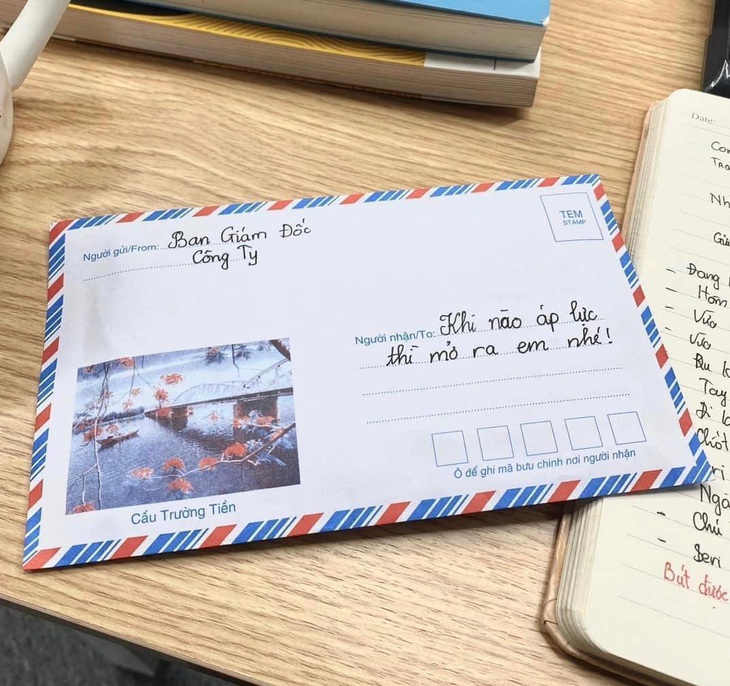 Người gửi/From: Ban Giám Đốc
Công Ty
TEM
STAMP
Người nhận/To: Khi nào áp lực
thì mở ra em nhé!
Ô để ghi mã bưu chính nơi người nhận
Cầu Trường Tiền
Date:
- Đang
- Hôm
- Vừa
- Vừa
Tay
Chốt
- Chú
- Seri
Bút được